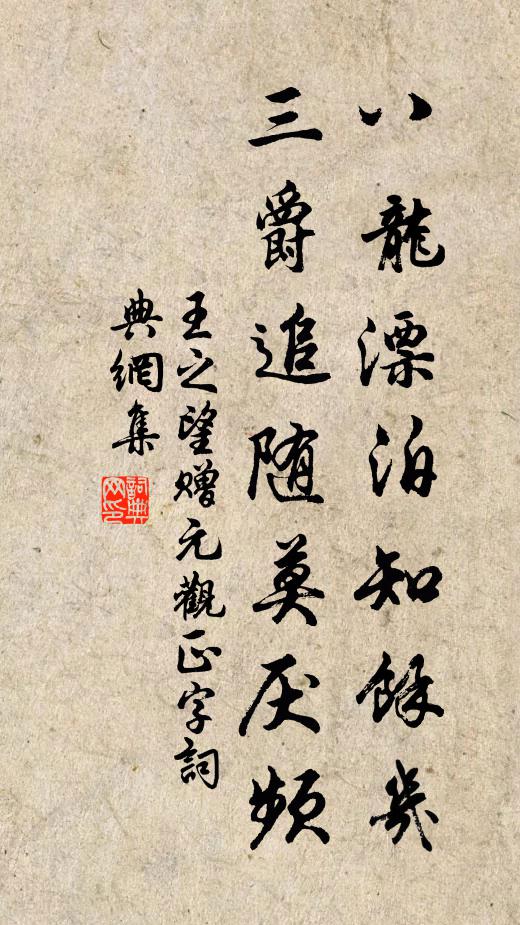 八龍漂泊知餘幾
三爵追随莫厌頻
王之望赠元觀正字詞
典網集
詞典
网印